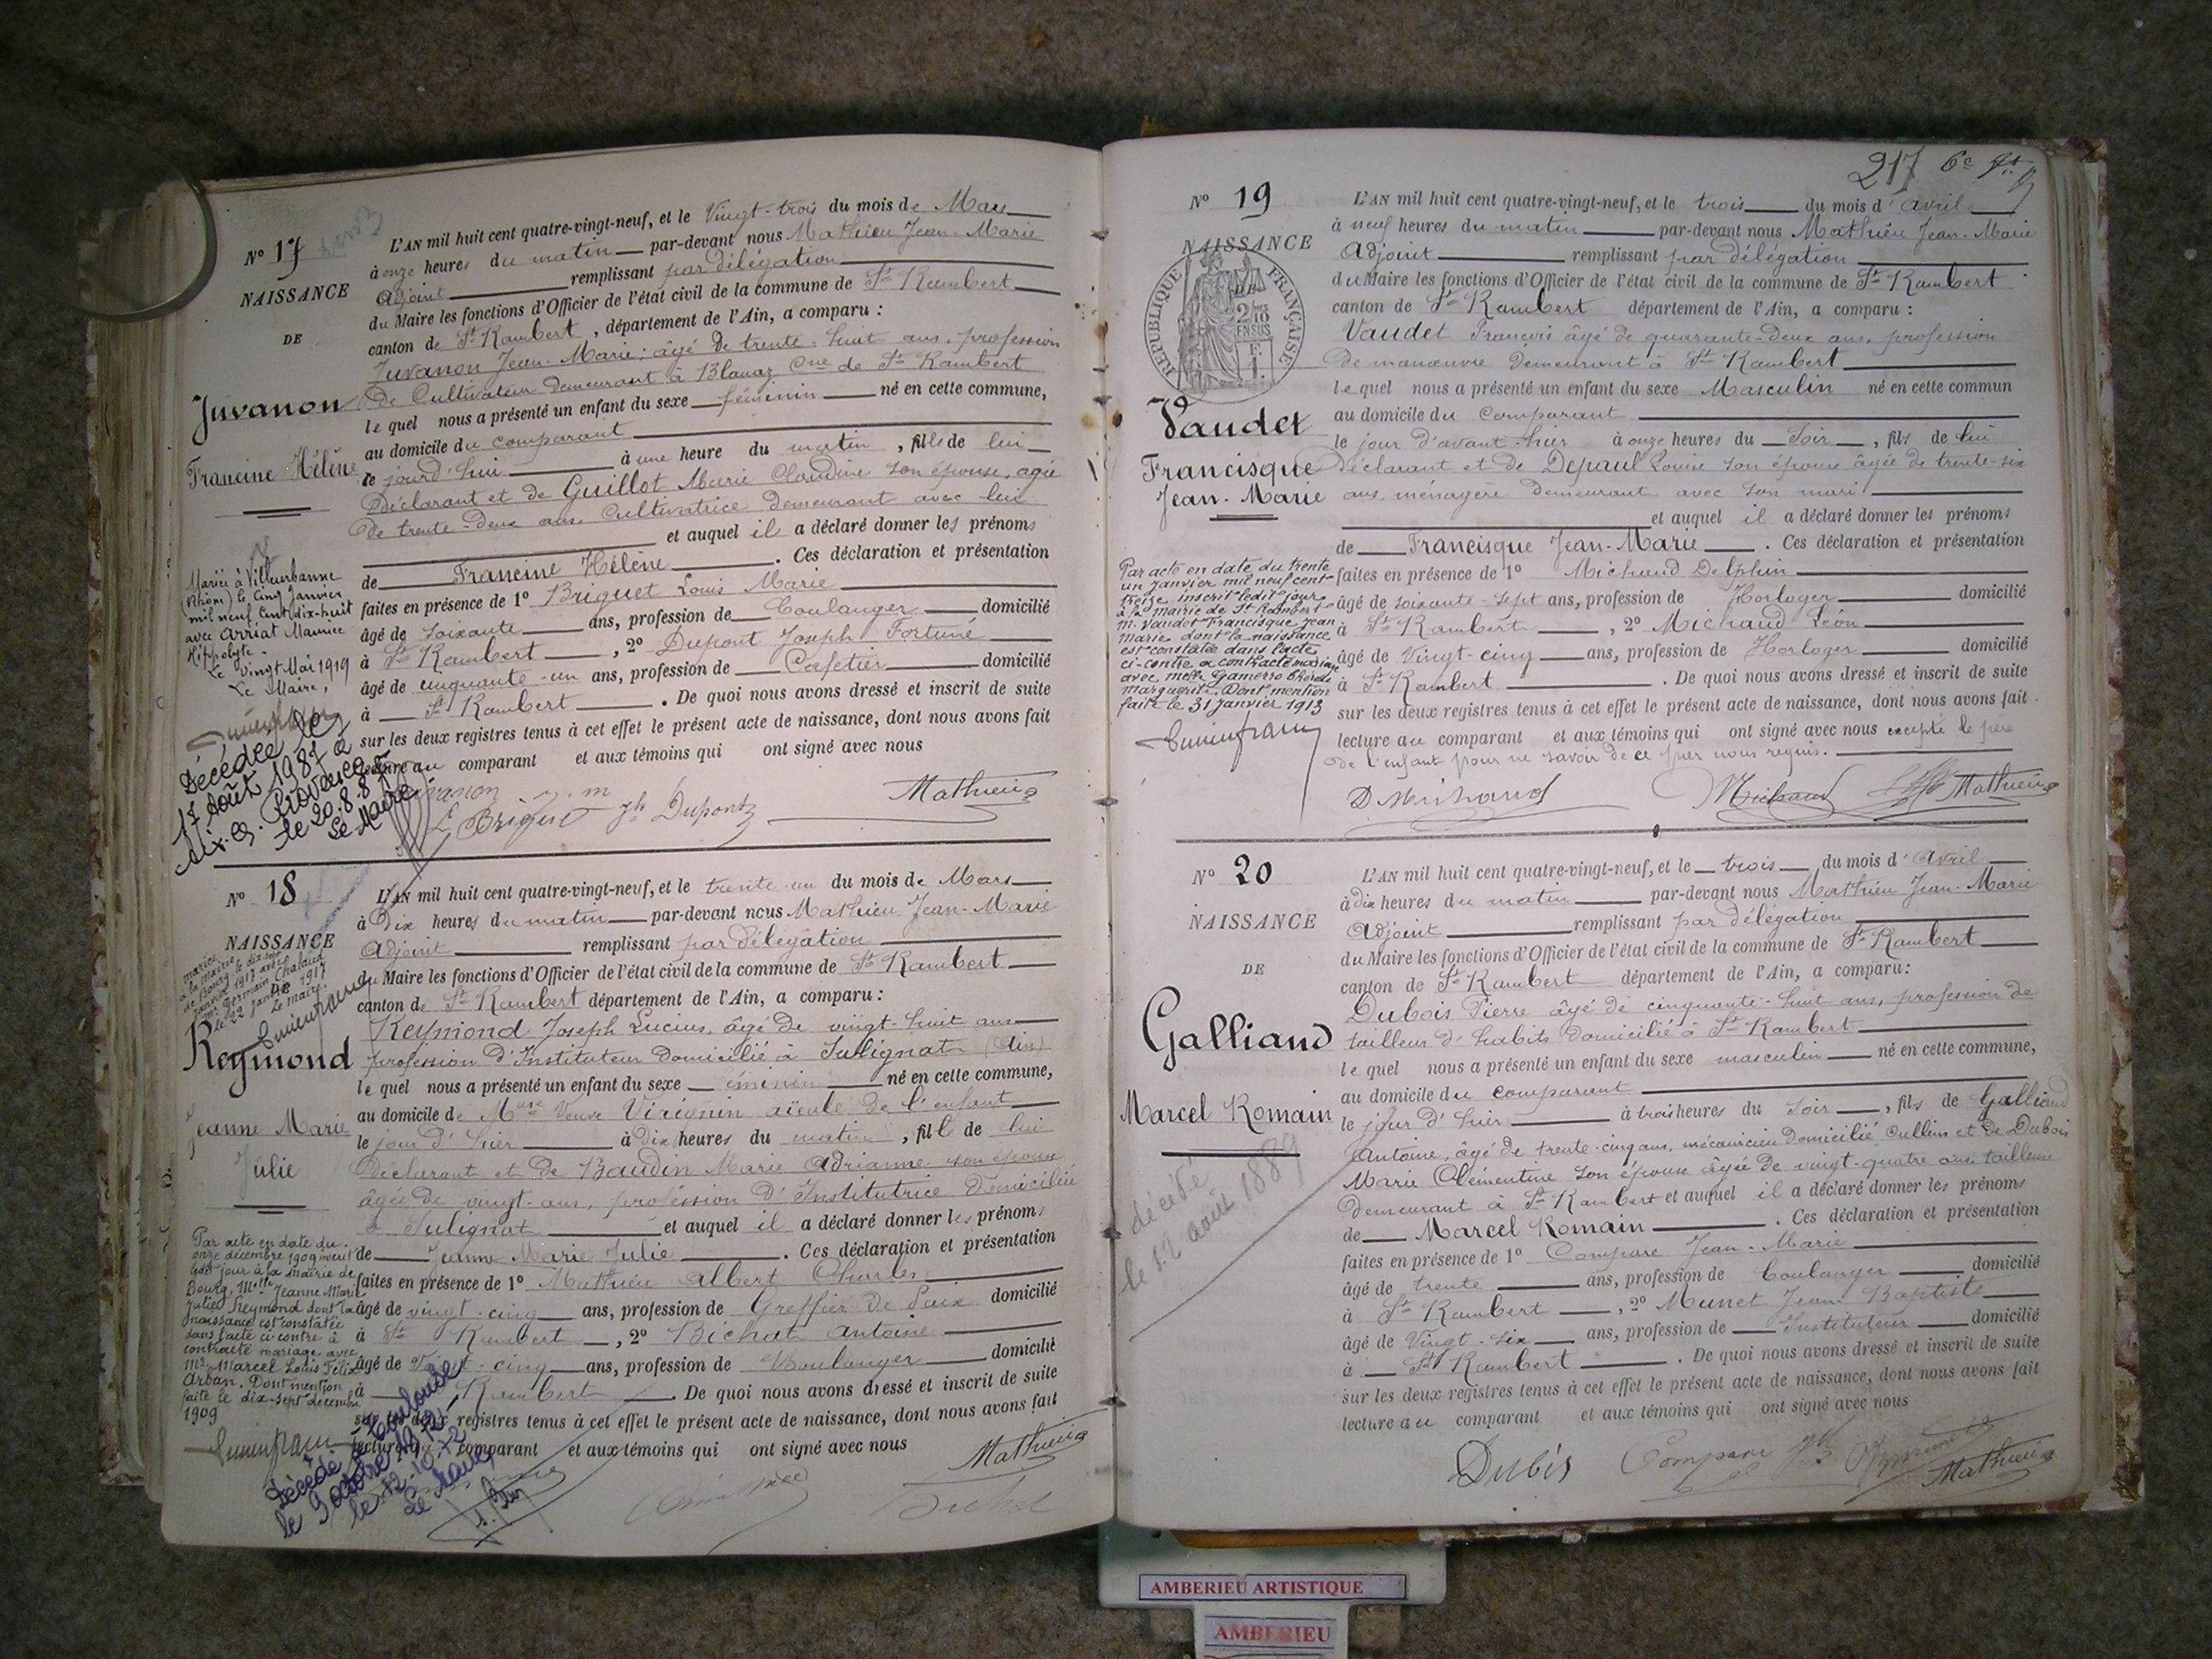 Nº 17
NAISSANCE
DE
Juvanon
Francine Hélène
Mariée à Villeurbanne
(Rhône) le cinq Janvier
mil neuf cent dix-huit
avec Arriat Maurice
Hippolyte.
Le vingt Mai 1919
Le Maire,
Décédée le
17 août 1987 à
Aix-en-Provence
le 20.8.87
Le Maire
L'AN mil huit cent quatre-vingt-neuf, et le Vingt-trois du mois de Mars
à onze heures du matin par-devant nous Mathieu Jean-Marie
Adjoint remplissant par délégation
du Maire les fonctions d'Officier de l'état civil de la commune de St Rambert
canton de St Rambert, département de l'Ain, a comparu :
Juvanon Jean-Marie, âgé de trente-huit ans, profession
de Cultivateur demeurant à Blanaz Cne de St Rambert
lequel nous a présenté un enfant du sexe féminin né en cette commune,
au domicile du comparant
le jourd'hui à une heure du matin, fille de lui
Déclarant et de Guillot Marie Claudine son épouse, agée
de trente-deux ans Cultivatrice demeurant avec lui
et auquel il a déclaré donner les prénoms
de Francine Hélène. Ces déclaration et présentation
faites en présence de 1º Briguet Louis Marie
âgé de soixante ans, profession de Boulanger domicilié
à St Rambert, 2º Dupont Joseph Fortuné
âgé de cinquante-un ans, profession de Cafetier domicilié
à St Rambert. De quoi nous avons dressé et inscrit de suite
sur les deux registres tenus à cet effet le présent acte de naissance, dont nous avons fait
lecture au comparant et aux témoins qui ont signé avec nous
Juvanon J. M
L Briguet Jh Dupont Mathieu
Nº 18
NAISSANCE
Reymond
Jeanne Marie
Julie
Par acte en date du
onze décembre 1909 inscrit
ledit jour à la mairie de
Bourg, Melle Jeanne Marie
Julie Reymond dont la
naissance est constatée
dans l'acte ci-contre a
contracté mariage avec
Mr Marcel Louis Félix
Arban. Dont mention
faite le dix-sept décembre
1909
Décédée à Toulouse
le 9 octobre 1972
le 12-10-72
Le Maire,
L'AN mil huit cent quatre-vingt-neuf, et le trente-un du mois de Mars
à Dix heures du matin par-devant nous Mathieu Jean-Marie
Adjoint remplissant par délégation
du Maire les fonctions d'Officier de l'état civil de la commune de St Rambert
canton de St Rambert département de l'Ain, a comparu :
Reymond Joseph Lucien, âgé de vingt-huit ans
profession d'Instituteur domicilié à Sulignat (Ain)
lequel nous a présenté un enfant du sexe féminin né en cette commune,
au domicile de Mme Veuve Virignin aïeule de l'enfant
le jour d'hier à Dix heures du matin, fille de lui
Déclarant et de Baudin Marie Adrianne son épouse
âgée de vingt-ans, profession d'Institutrice Domiciliée
à Sulignat et auquel il a déclaré donner les prénoms
de Jeanne Marie Julie. Ces déclaration et présentation
faites en présence de 1º Mathieu Albert Charles
âgé de vingt-cinq ans, profession de Greffier de Paix domicilié
à St Rambert, 2º Bichat Antoine
âgé de Vingt-cinq ans, profession de Boulanger domicilié
à St Rambert. De quoi nous avons dressé et inscrit de suite
sur les deux registres tenus à cet effet le présent acte de naissance, dont nous avons fait
lecture au comparant et aux témoins qui ont signé avec nous
Mathieu
Bichat
217 6e ft
Nº 19
NAISSANCE
RÉPUBLIQUE FRANÇAISE
2/10
EN SUS
Vaudet
Francisque
Jean-Marie
Par acte en date du trente
un janvier mil neuf cent
treize inscrit ledit jour
à la mairie de St Rambert
M. Vaudet Francisque Jean
Marie dont la naissance
est constatée dans l'acte
ci-contre a contracté mariage
avec Melle Gamerro Thérèse
Marguerite. Dont mention
faite le 31 janvier 1913
L'AN mil huit cent quatre-vingt-neuf, et le trois du mois d'avril
à neuf heures du matin par-devant nous Mathieu Jean-Marie
Adjoint remplissant par délégation
du Maire les fonctions d'Officier de l'état civil de la commune de St Rambert
canton de St Rambert département de l'Ain, a comparu :
Vaudet François âgé de quarante-deux ans, profession
de manœuvre demeurant à St Rambert
lequel nous a présenté un enfant du sexe Masculin né en cette commun
au domicile du comparant
le jour d'avant-hier à onze heures du Soir, fils de lui
déclarant et de Depaul Louise son épouse âgée de trente-six
ans, ménagère demeurant avec son mari
et auquel il a déclaré donner les prénoms
de Francisque Jean-Marie. Ces déclaration et présentation
faites en présence de 1º Michaud Delphin
âgé de soixante-sept ans, profession de Horloger domicilié
à St Rambert, 2º Michaud Léon
âgé de Vingt-cinq ans, profession de Horloger domicilié
à St Rambert. De quoi nous avons dressé et inscrit de suite
sur les deux registres tenus à cet effet le présent acte de naissance, dont nous avons fait
lecture au comparant et aux témoins qui ont signé avec nous excepté le père
de l'enfant pour ne savoir de ce fuer nous requis.
D Michaud Michaud Mathieu
Nº 20
NAISSANCE
DE
Galliand
Marcel Romain
décédé
le 12 août 1889
L'AN mil huit cent quatre-vingt-neuf, et le trois du mois d'Avril
à dix heures du matin par-devant nous Mathieu Jean-Marie
Adjoint remplissant par délégation
du Maire les fonctions d'Officier de l'état civil de la commune de St Rambert
canton de St Rambert département de l'Ain, a comparu :
Dubois Pierre âgé de cinquante-huit ans, profession de
tailleur d'habits domicilié à St Rambert
lequel nous a présenté un enfant du sexe masculin né en cette commune,
au domicile du comparant
le jour d'hier à trois heures du soir, fils de Galliand
Antoine, âgé de trente-cinq ans, mécanicien domicilié Oullins et de Dubois
Marie Clémentine son épouse âgée de vingt-quatre ans, tailleuse
demeurant à St Rambert et auquel il a déclaré donner les prénoms
de Marcel Romain. Ces déclaration et présentation
faites en présence de 1º Compare Jean-Marie
âgé de trente ans, profession de boulanger domicilié
à St Rambert, 2º Munet Jean-Baptiste
âgé de Vingt-six ans, profession de Instituteur domicilié
à St Rambert. De quoi nous avons dressé et inscrit de suite
sur les deux registres tenus à cet effet le présent acte de naissance, dont nous avons fait
lecture au comparant et aux témoins qui ont signé avec nous
Dubois Compare Mathieu
AMBERIEU ARTISTIQUE
AMBERIEU